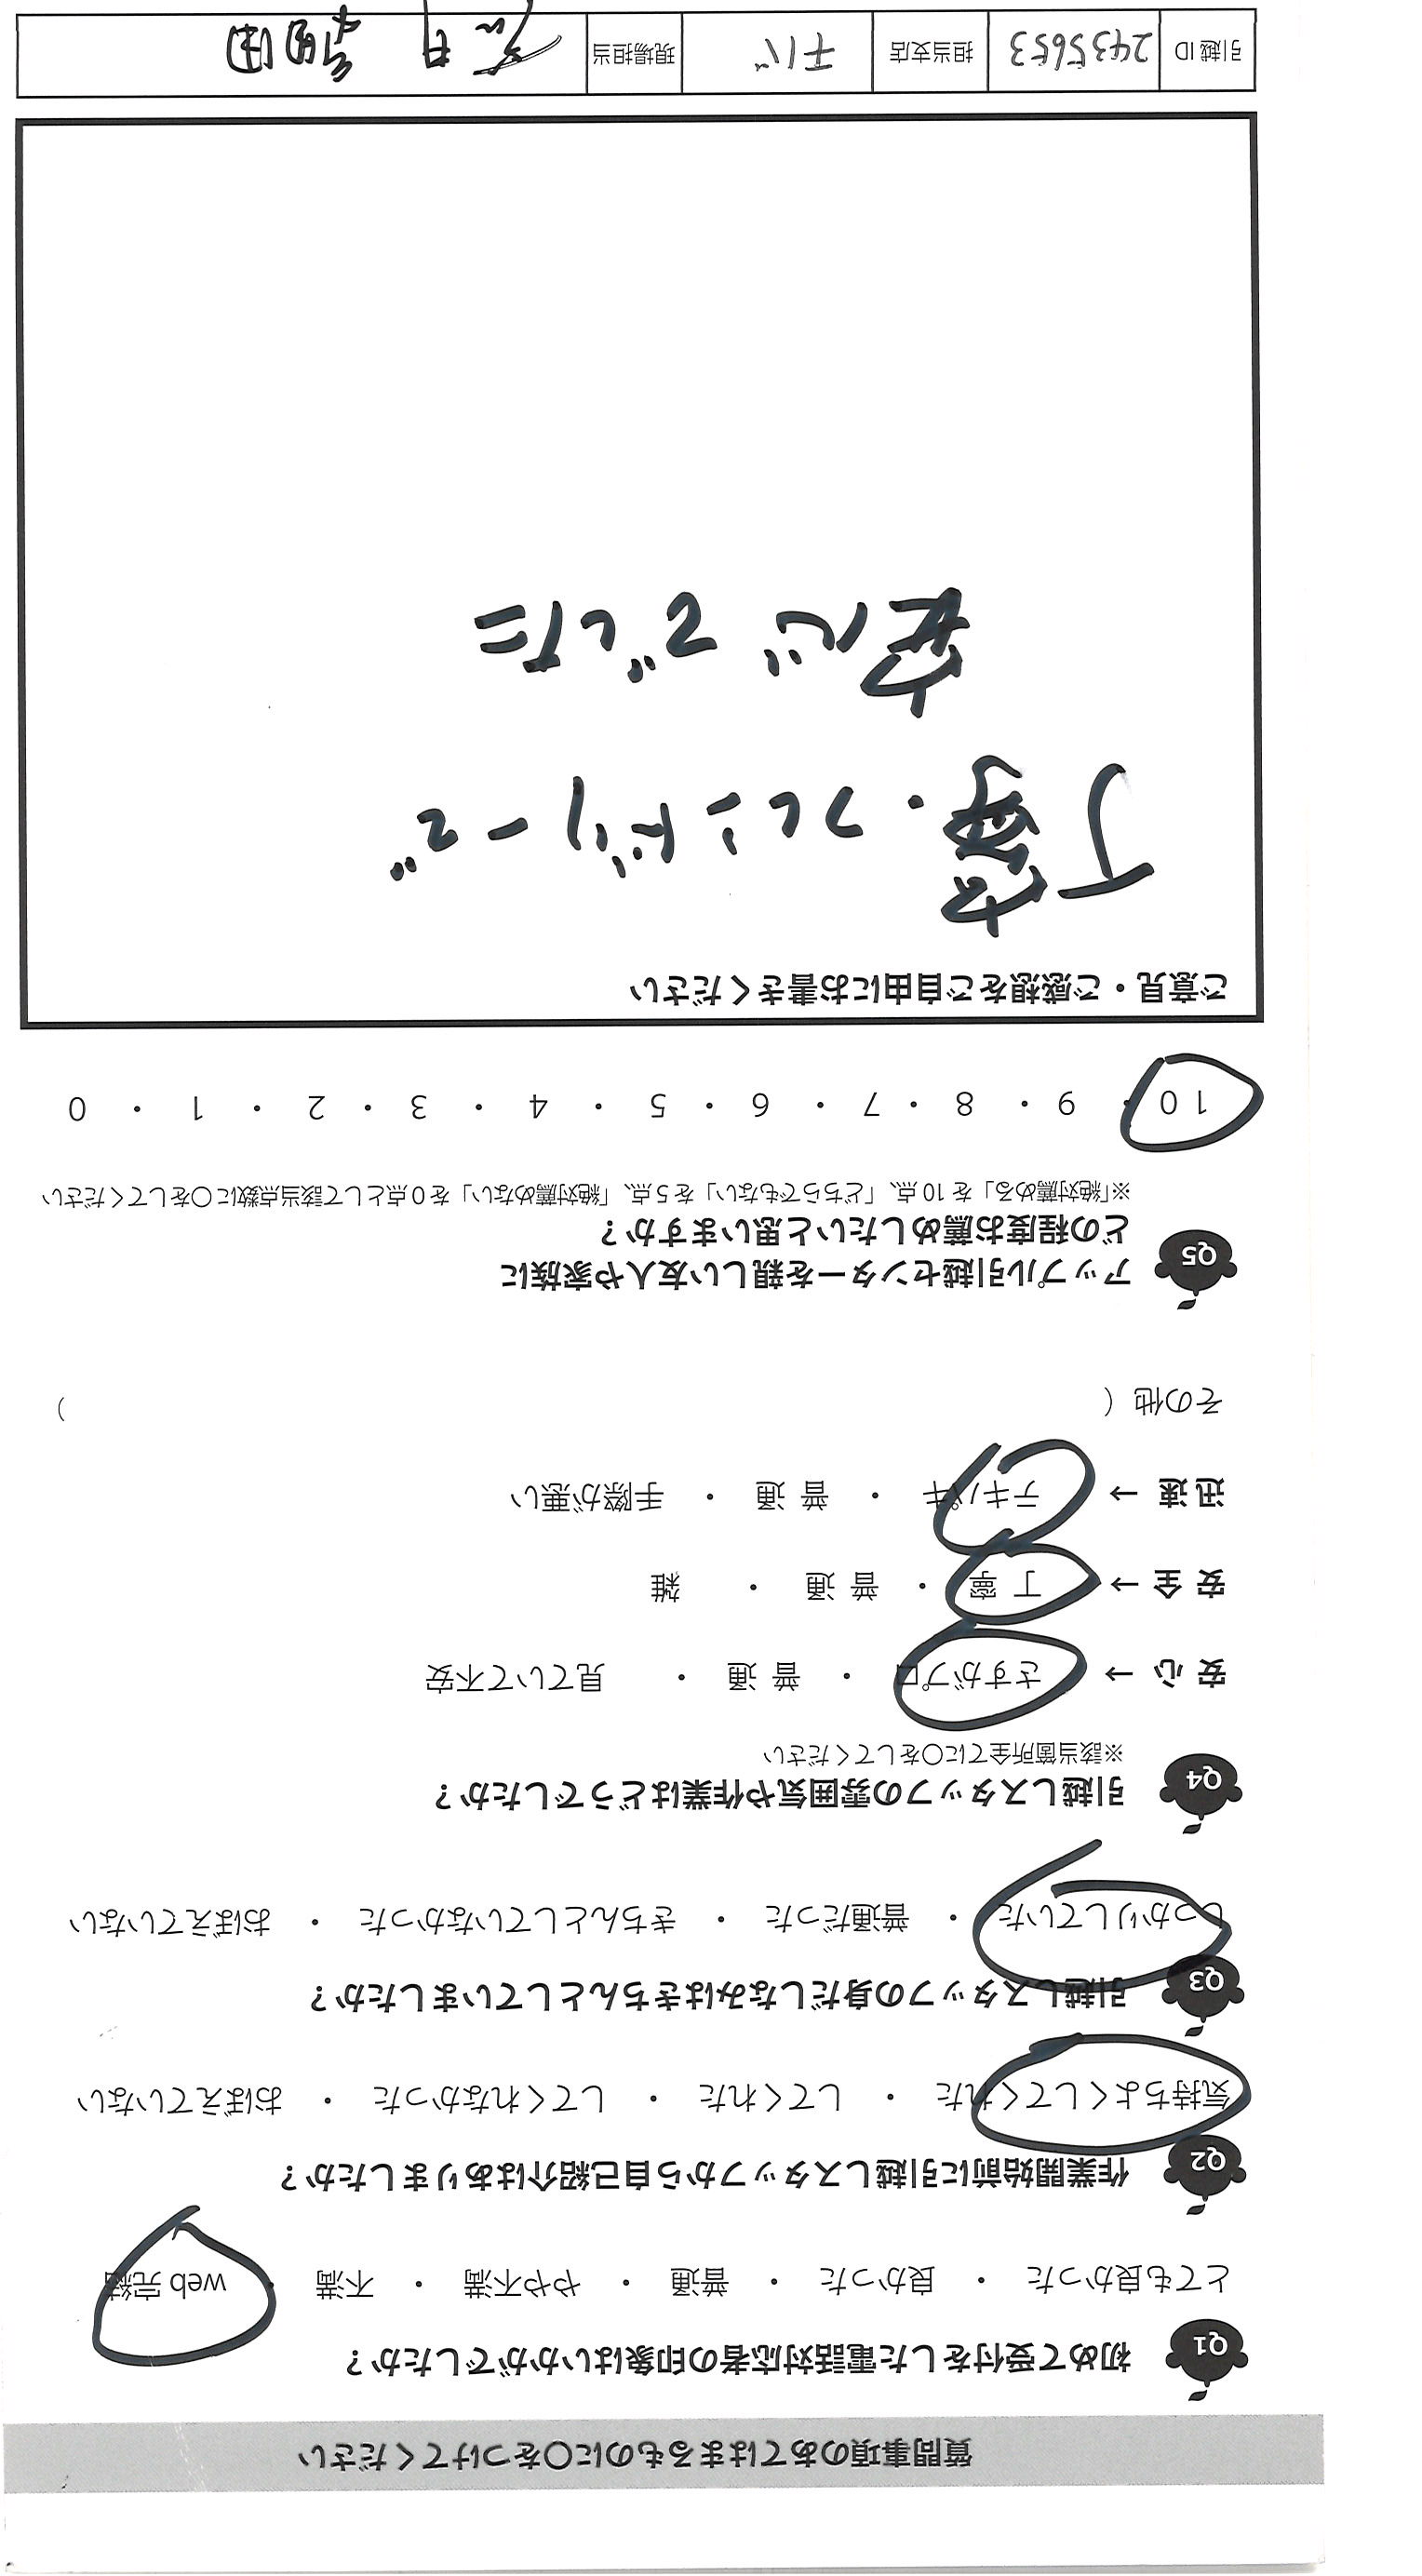 質問事項のあてはまるものに○をつけてください
Q1 初めて受付をした電話対応者の印象はいかがでしたか？
とても良かった ・ 良かった ・ 普通 ・ やや不満 ・ 不満 ・ web 完結
Q2 作業開始前に引越しスタッフから自己紹介はありましたか？
気持ちよくしてくれた ・ してくれた ・ してくれなかった ・ おぼえていない
Q3 引越しスタッフの身だしなみはきちんとしていましたか？
しっかりしていた ・ 普通だった ・ きちんとしていなかった ・ おぼえていない
Q4 引越しスタッフの雰囲気や作業はどうでしたか？
※該当箇所全てに○をしてください
安 心 → さすがプロ ・ 普 通 ・ 見ていて不安
安 全 → 丁 寧 ・ 普 通 ・ 雑
迅 速 → テキパキ ・ 普 通 ・ 手際が悪い
その他（ ）
Q5 アップル引越センターを親しい友人や家族に
どの程度お薦めしたいと思いますか？
※「絶対薦める」を 10 点、「どちらでもない」を 5 点、「絶対薦めない」を 0 点として該当点数に○をしてください
10 ・ 9 ・ 8 ・ 7 ・ 6 ・ 5 ・ 4 ・ 3 ・ 2 ・ 1 ・ 0
ご意見・ご感想をご自由にお書きください
丁寧・フレンドリーで
安心でした
引越 ID 2435653 担当支店 千バ 現場担当